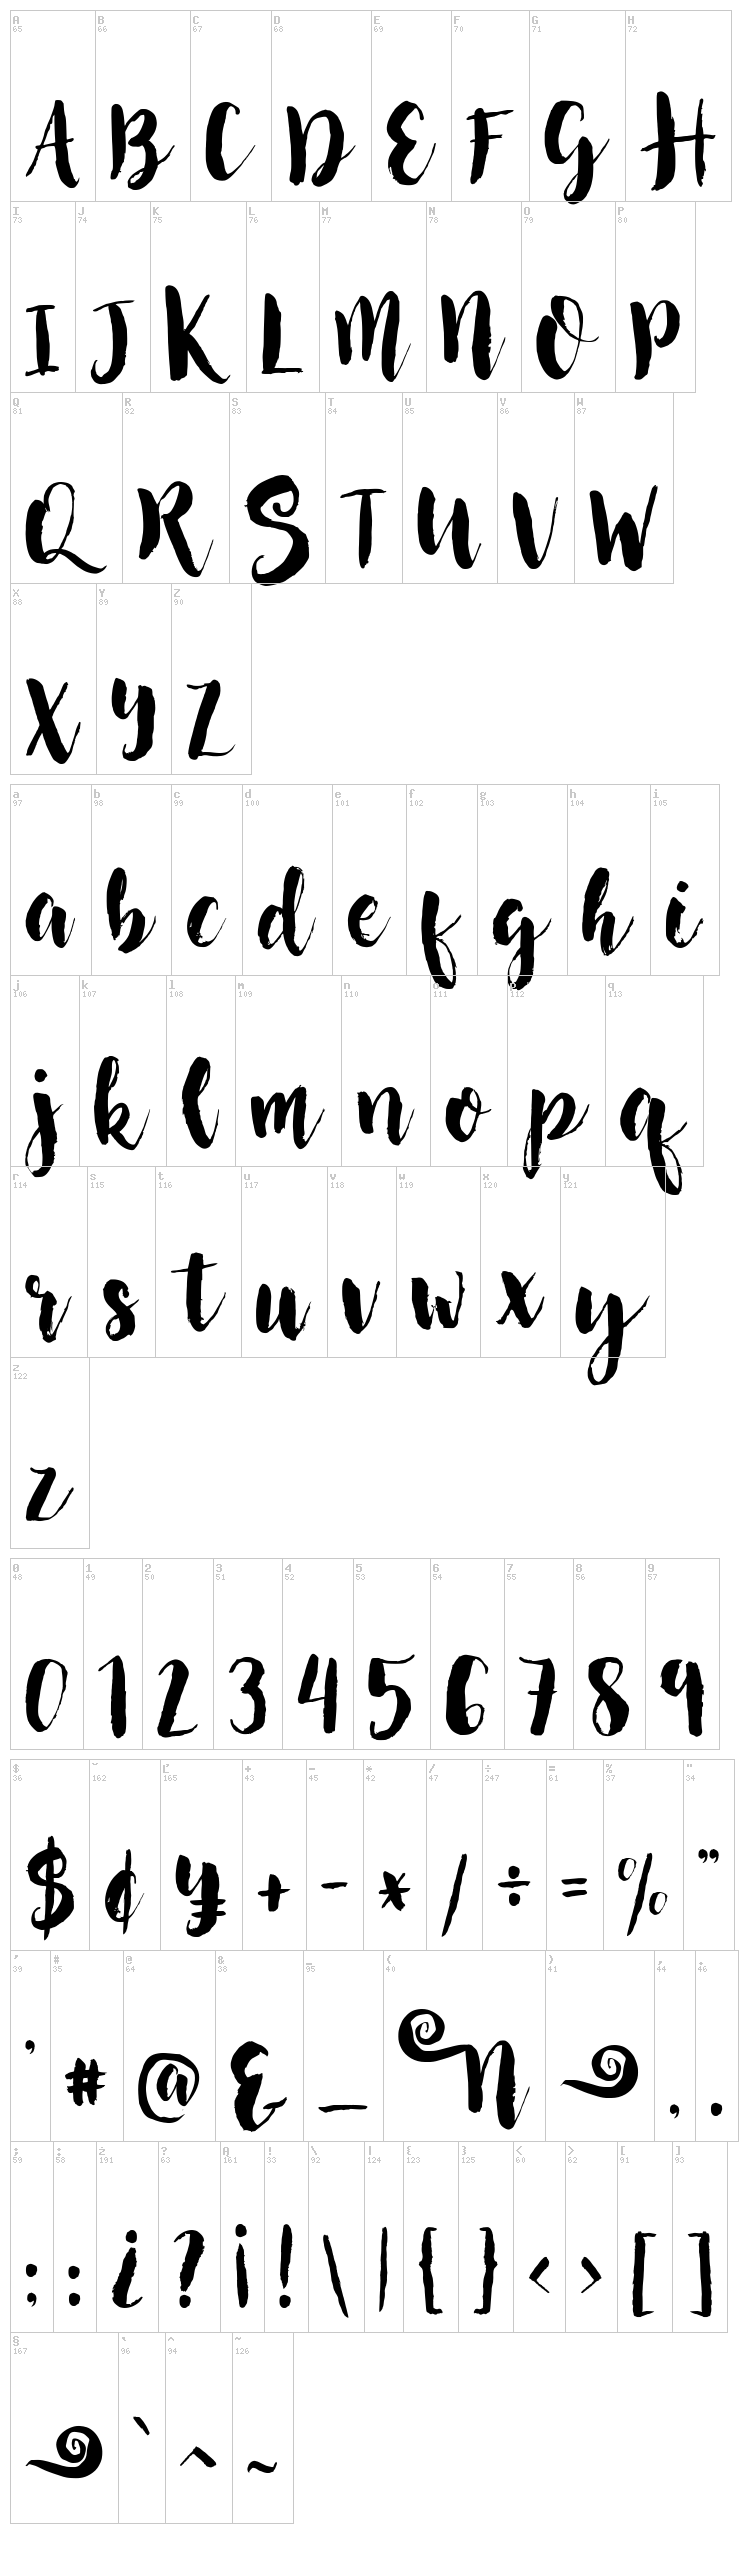 A B C D E F G H
65 66 67 68 69 70 71 72
A B C D E F G H
I J K L M N O P
73 74 75 76 77 78 79 80
I J K L M N O P
Q R S T U V W
81 82 83 84 85 86 87
Q R S T U V W
X Y Z
88 89 90
X Y Z
a b c d e f g h i
97 98 99 100 101 102 103 104 105
a b c d e f g h i
j k l m n o p q
106 107 108 109 110 111 112 113
j k l m n o p q
r s t u v w x y
114 115 116 117 118 119 120 121
r s t u v w x y
z
122
z
0 1 2 3 4 5 6 7 8 9
48 49 50 51 52 53 54 55 56 57
0 1 2 3 4 5 6 7 8 9
$ ˘ Ľ + - * / ÷ = % "
36 162 165 43 45 42 47 247 61 37 34
$ ¢ ¥ + - * / ÷ = % "
' # @ & _ ( ) , .
39 35 64 38 95 40 41 44 46
' # @ & _ n , .
; : ż ? Ą ! \ | { } < > [ ]
59 58 191 63 161 33 92 124 123 125 60 62 91 93
; : ¿ ? ¡ ! \ | { } < > [ ]
§ ` ^ ~
167 96 94 126
` ^ ~